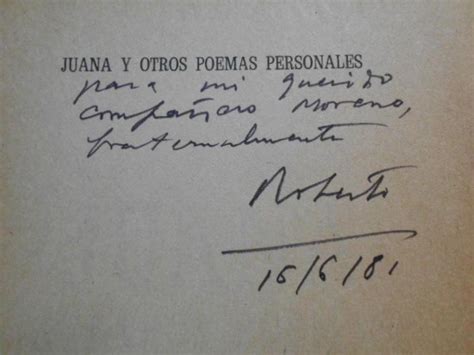 JUANA Y OTROS POEMAS PERSONALES
para mi querido
compañero Moreno,
fraternalmente
Roberto
16/6/81